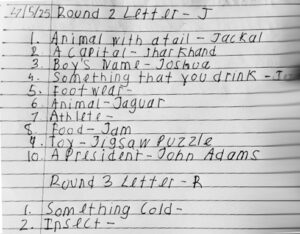 27/5/25 Round 2 Letter - J
1. Animal with a tail - Jackal
2. A Capital - Jharkhand
3. Boy's Name - Joshua
4. Something that you drink -
5. Footwear -
6. Animal - Jaguar
7 Athlete -
8. Food - Jam
9. Toy - Jigsaw Puzzle
10. A President - John Adams
Round 3 Letter - R
1. Something Cold -
2. Insect -